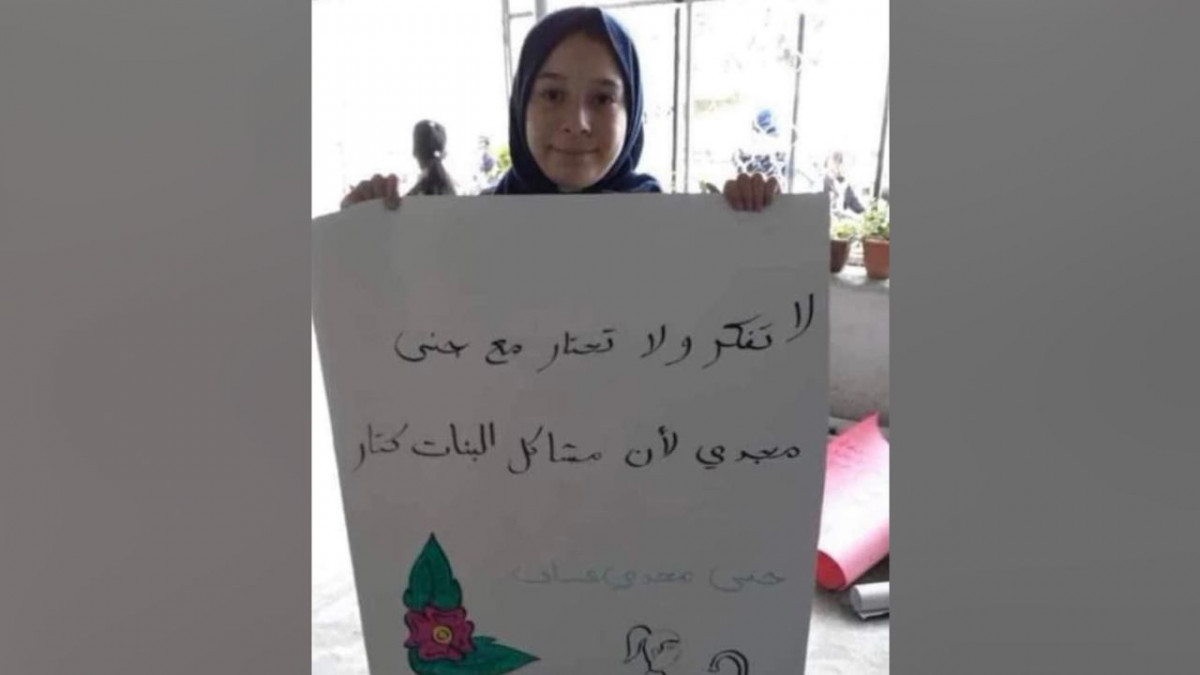 لا تفكر ولا تحتار مع حنى
مجدي لأن مشاكل البنات كتار
حنى مجدي عساف